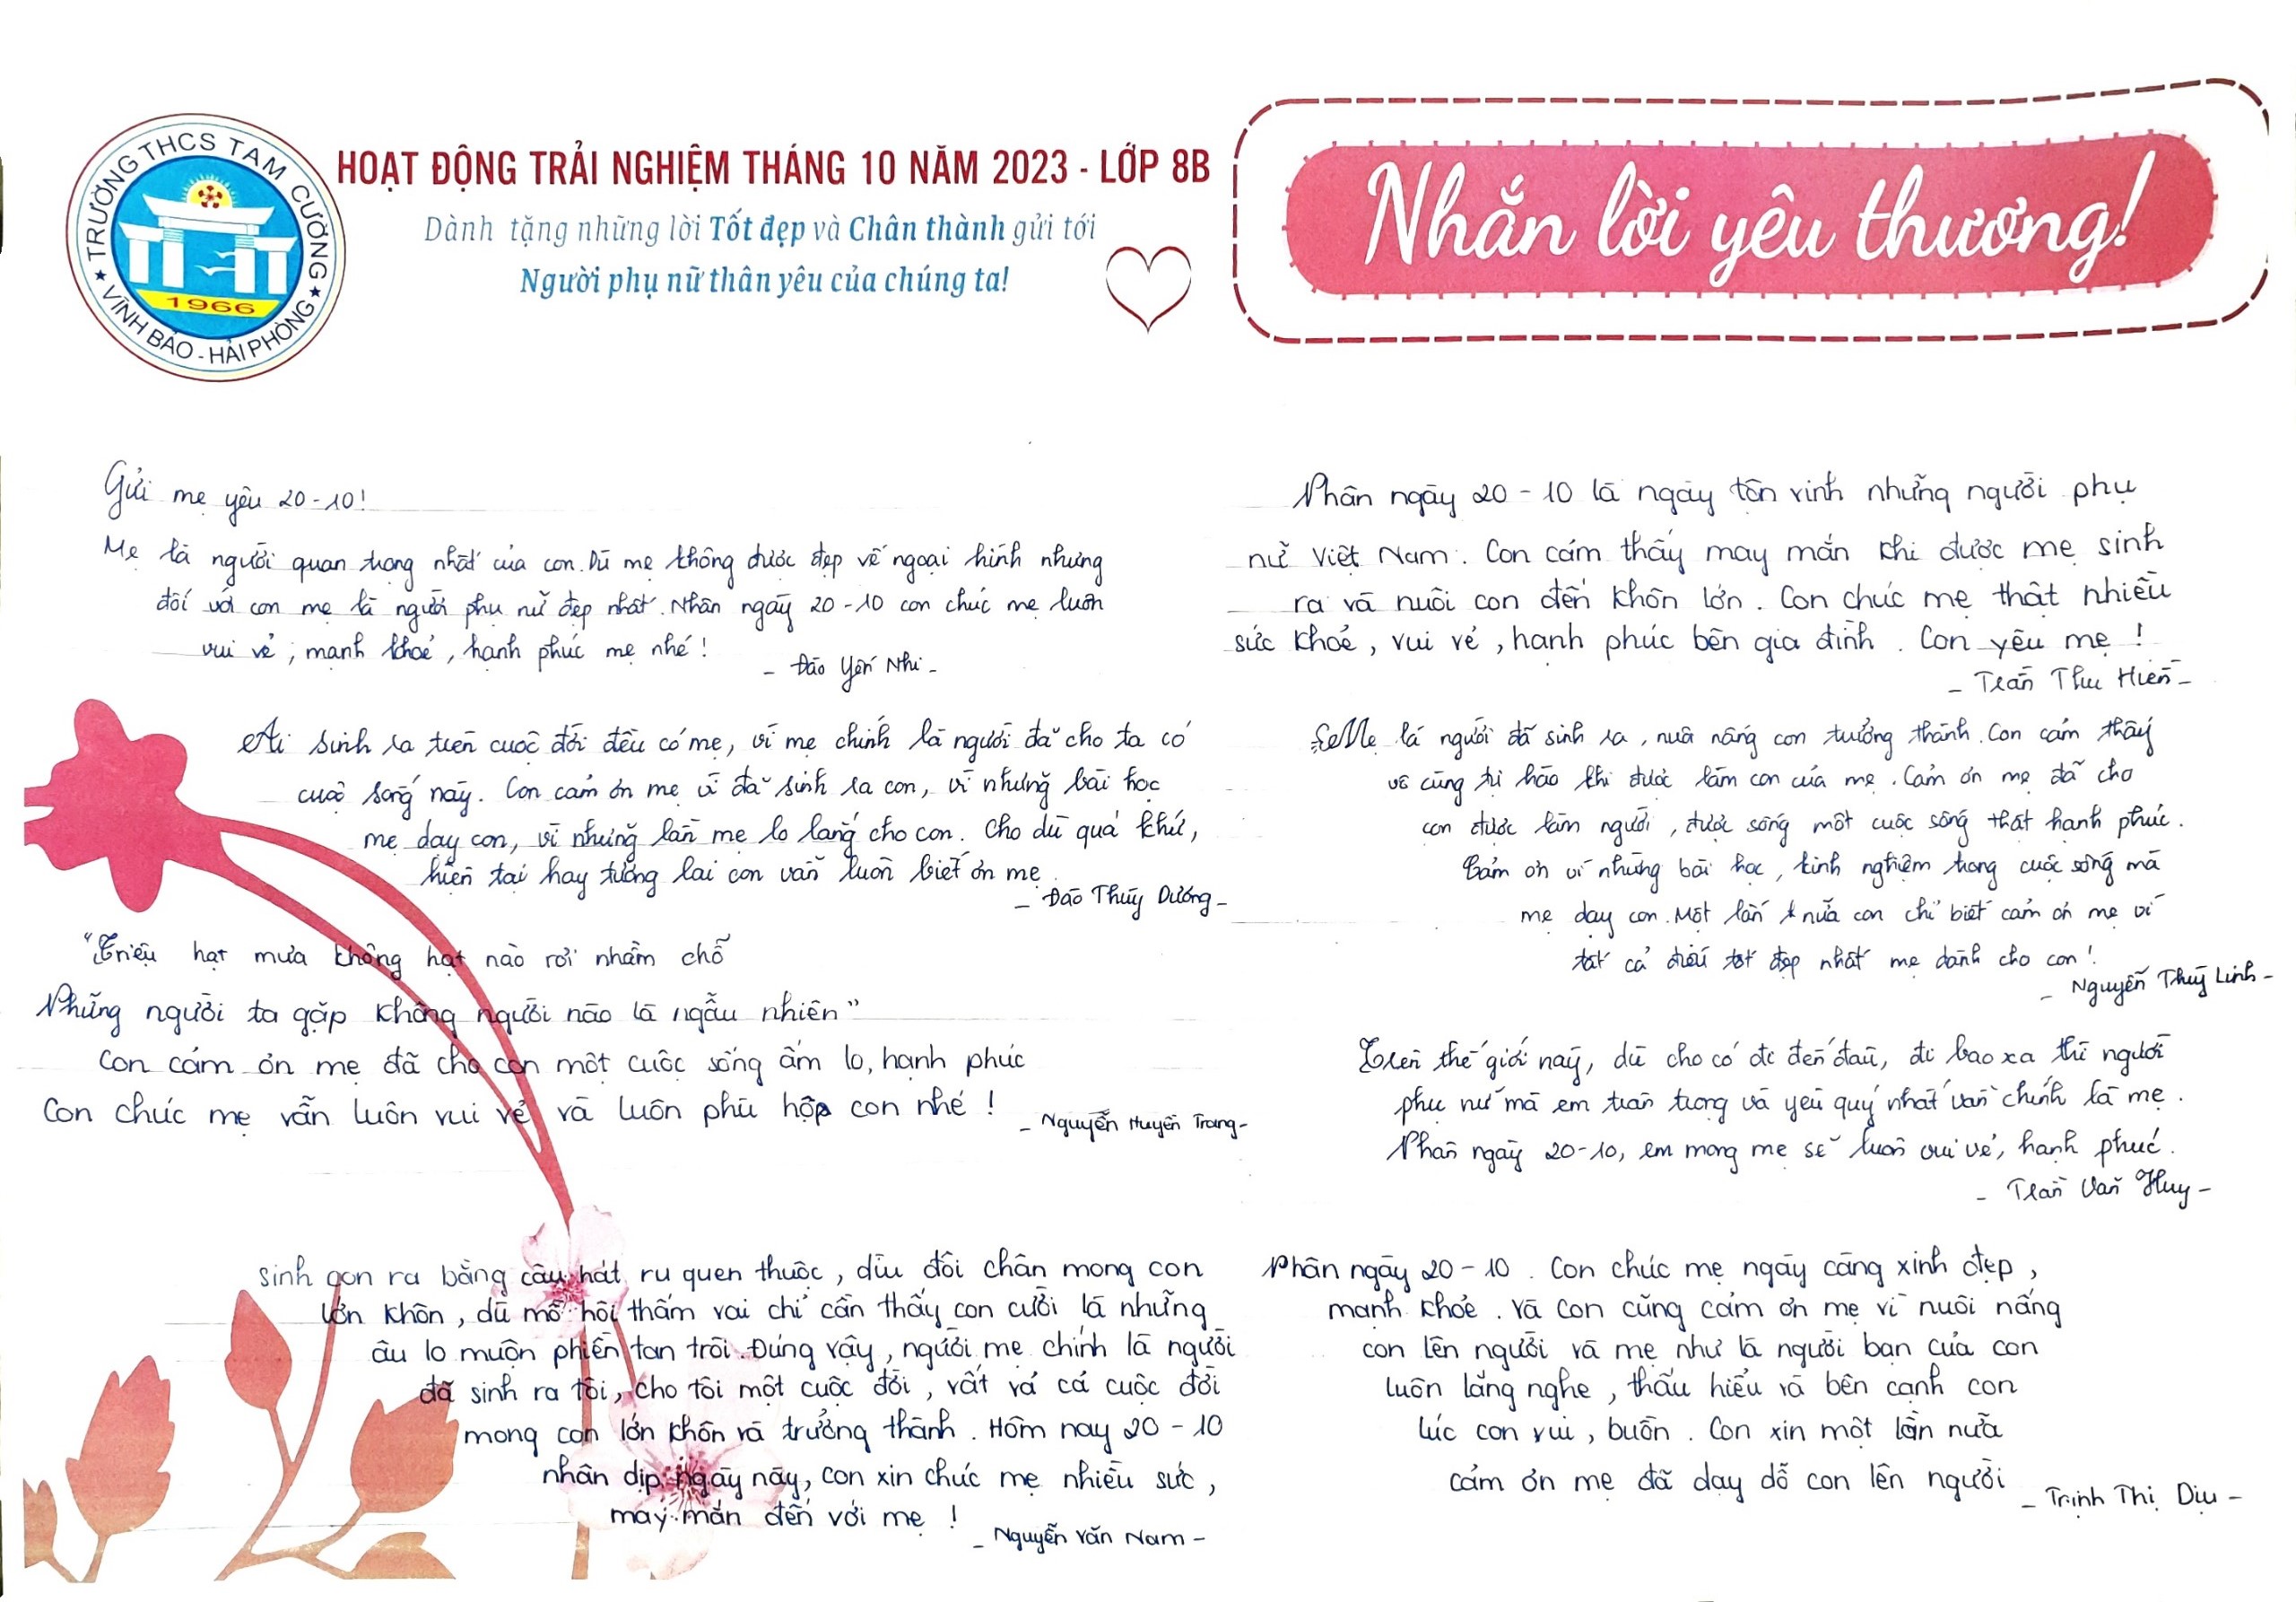 TRƯỜNG THCS TAM CƯỜNG
1966
VĨNH BẢO - HẢI PHÒNG
HOẠT ĐỘNG TRẢI NGHIỆM THÁNG 10 NĂM 2023 - LỚP 8B
Dành tặng những lời Tốt đẹp và Chân thành gửi tới
Người phụ nữ thân yêu của chúng ta!
Nhắn lời yêu thương!
Gửi mẹ yêu 20-10!
Mẹ là người quan trọng nhất của con. Dù mẹ không được đẹp về ngoại hình nhưng
đối với con mẹ là người phụ nữ đẹp nhất. Nhân ngày 20-10 con chúc mẹ luôn
vui vẻ, mạnh khoẻ, hạnh phúc mẹ nhé!
- Đào Yến Nhi -
Ai sinh ra trên cuộc đời đều có mẹ, vì mẹ chính là người đã cho ta có
cuộc sống này. Con cảm ơn mẹ vì đã sinh ra con, vì những bài học
mẹ dạy con, vì những lần mẹ lo lắng cho con. Cho dù quá khứ,
hiện tại hay tương lai con vẫn luôn biết ơn mẹ
- Đào Thuỳ Dương -
"Triệu hạt mưa không hạt nào rơi nhầm chỗ
Những người ta gặp không người nào là ngẫu nhiên"
Con cảm ơn mẹ đã cho con một cuộc sống ấm lo, hạnh phúc
Con chúc mẹ vẫn luôn vui vẻ và luôn phù hộp con nhé!
- Nguyễn Huyền Trang -
Sinh con ra bằng câu hát ru quen thuộc, dìu đôi chân mong con
lớn khôn, dù mồ hôi thấm vai chỉ cần thấy con cười là những
âu lo muộn phiền tan trôi. Đúng vậy, người mẹ chính là người
đã sinh ra tôi, cho tôi một cuộc đời, vất vả cả cuộc đời
mong con lớn khôn và trưởng thành. Hôm nay 20-10
nhân dịp ngày này, con xin chúc mẹ nhiều sức,
may mắn đến với mẹ!
- Nguyễn Văn Nam -
Nhân ngày 20-10 là ngày tôn vinh những người phụ
nữ Việt Nam. Con cảm thấy may mắn khi được mẹ sinh
ra và nuôi con đến khôn lớn. Con chúc mẹ thật nhiều
sức khoẻ, vui vẻ, hạnh phúc bên gia đình. Con yêu mẹ!
- Trần Thu Hiền -
Mẹ là người đã sinh ra, nuôi nấng con trưởng thành. Con cảm thấy
vô cùng tự hào khi được làm con của mẹ. Cảm ơn mẹ đã cho
con được làm người, được sống một cuộc sống thật hạnh phúc.
Cảm ơn vì những bài học, kinh nghiệm trong cuộc sống mà
mẹ dạy con. Một lần nữa con chỉ biết cảm ơn mẹ vì
tất cả điều tốt đẹp nhất mẹ dành cho con!
- Nguyễn Thuỳ Linh -
Trên thế giới này, dù cho có đi đến đâu, đi bao xa thì người
phụ nữ mà em trân trọng và yêu quý nhất vẫn chính là mẹ.
Nhân ngày 20-10, em mong mẹ sẽ luôn vui vẻ, hạnh phúc.
- Trần Văn Huy -
Nhân ngày 20-10. Con chúc mẹ ngày càng xinh đẹp,
mạnh khoẻ. Và con cũng cảm ơn mẹ vì nuôi nấng
con lên người và mẹ như là người bạn của con
luôn lắng nghe, thấu hiểu và bên cạnh con
lúc con vui, buồn. Con xin một lần nữa
cảm ơn mẹ đã dạy dỗ con lên người
- Trịnh Thị Dịu -